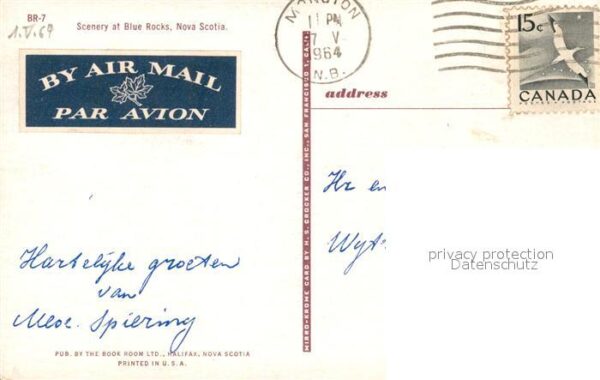 BR-7
Scenery at Blue Rocks, Nova Scotia.
1.V.69
BY AIR MAIL
PAR AVION
MONCTON
11 PM
7 V
1964
N.B.
15c
CANADA
address
MIRRO-KROME CARD BY H. S. CROCKER CO., INC., SAN FRANCISCO 1, CALIF.
Hr en
Wyt
privacy protection
Datenschutz
Hartelijke groeten
van
Spiering
PUB. BY THE BOOK ROOM LTD., HALIFAX, NOVA SCOTIA
PRINTED IN U.S.A.